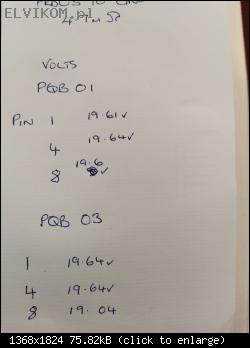 ELVIKOM.pl
VOLTS
PQB 01
PIN 1 19.61v
4 19.64v
8 19.6 v
PQB 03
1 19.64v
4 19.64v
8 19.04
1368x1824 75.82kB (click to enlarge)